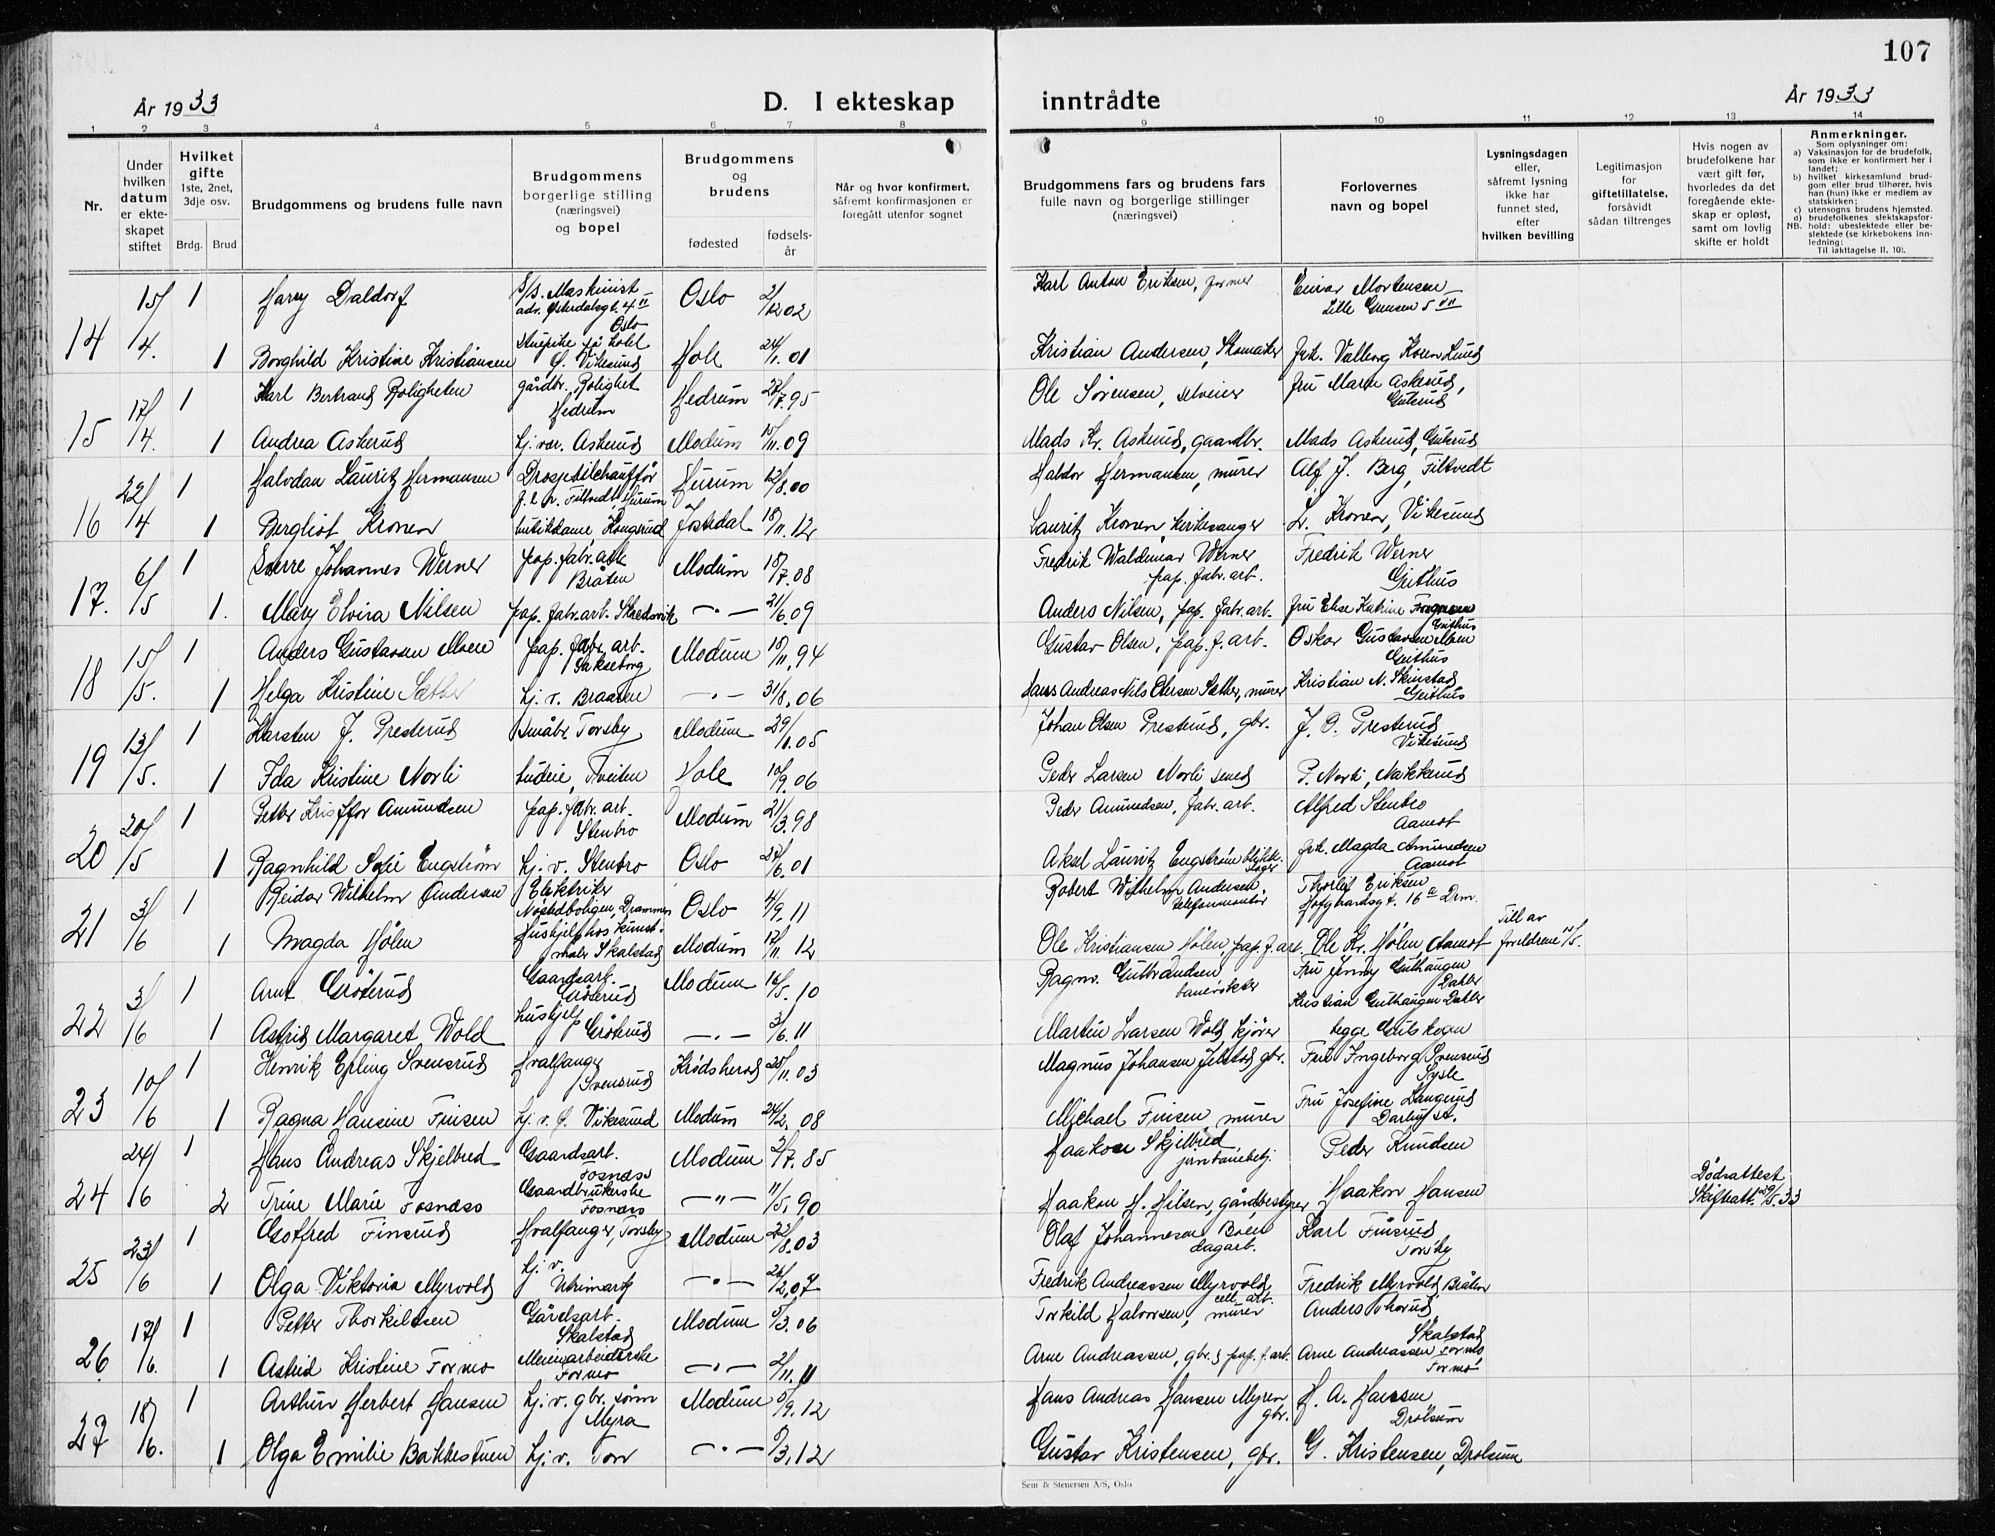 107
År 1933
D. I ekteskap inntrådte
År 1933
1 2 3 4 5 6 7 8 9 10 11 12 13 14
Nr.
Under hvilken datum er ekteskapet stiftet
Hvilket gifte 1ste, 2net, 3dje osv.
Brdg. Brud
Brudgommens og brudens fulle navn
Brudgommens borgerlige stilling (næringsvei) og bopel
Brudgommens og brudens
fødested
fødsels-år
Når og hvor konfirmert, såfremt konfirmasjonen er foregått utenfor sognet
Brudgommens fars og brudens fars fulle navn og borgerlige stillinger (næringsvei)
Forlovernes navn og bopel
Lysningsdagen eller, såfremt lysning ikke har funnet sted, efter hvilken bevilling
Legitimasjon for giftetillatelse, forsåvidt sådan tiltrenges
Hvis nogen av brudefolkene har vært gift før, hvorledes da det foregående ekteskap er opløst, samt om lovlig skifte er holdt
Anmerkninger.
Som oplysninger om:
a) Vaksinasjon for de brudefolk, som ikke er konfirmert her i landet;
b) hvilket kirkesamfund brudgom eller brud tilhører, hvis han (hun) ikke er medlem av statskirken;
c) utensogns brudens hjemsted.
d) brudefolkenes slektskapsforhold: ubeslektede eller beslektede (se kirkebokens innledning:
NB. Til iakttagelse II. 10).
14 15/4. 1 Harry Daldorf S/S. Maskinist adr. Østerdalsgt. 4 II Oslo Oslo 2/12 02 Karl Anton Eriksen, former Einar Mortensen Lille
1 Borghild Kristine Kristiansen stuepike på hotel Vikesund Hole 24/1. 01 Kristian Andersen, Skomaker frk. Valborg Lund
15 17/4. 1 Karl Bertrand Roligheten gårdbr., Rolighet Hedrum Hedrum 27/7. 95 Ole Sørensen, selveier fru Maren Askerud,
1 Andrea Askerud hj. vær. Askerud Modum 15/11. 09 Mads Kr. Askerud, gaardbr. Mads Askerud,
16 22/4 1 Halvdan Lauritz Hermansen Drosjebilchauffør Filtvedt, Hurum Hurum 12/8. 00 Haldor Hermansen, murer Alf J. Berg, Filtvedt
1 Bergliot Kronen butikkdame, Kongsrud Jostedal 18/11. 12 Lauritz Kronen, kirkesanger L. Kronen, Vikesund
17. 6/5 1 Sverre Johannes Werner pap. fabr. arb. Bråten Modum 18/7. 08 Fredrik Waldemar Werner pap. fabr. arb. Fredrik Werner Geithus
1. Mary Elvira Nilsen pap. fabr. arb. Skredsvik —„— 21/6. 09 Anders Nilsen, pap. fabr. arb. fru Else Katrine Geithus
18 15/5. 1 Anders Gustavsen Moen pap. fabr. arb. Modum 18/11. 94 Gustav Olsen, pap. f. arb. Oskar Gustavsen Moen Geithus
1 Helga Kristine Sæther hj. v. Braaten —„— 31/8. 06 Hans Andreas Nils Olsen Sæther, murer Kristian N. Skinstad Geithus
19 13/5. 1 Karsten J. Presterud Småbr. Torsby Modum 29/1. 05 Johan Olsen Presterud, gbr. J. O. Presterud Vikesund
1 Ida Kristine Norli budeie, Tveiten Hole 10/9. 06 Peder Larsen Norli P. Norli, Nakkerud
20 20/5 1 Petter Kristoffor Amundsen pap. fabr. arb. Stenbro Modum 21/3. 98 Peder Amundsen, fabr. arb. Alfred Stenbro Aamot
1 Ragnhild Sofie Engstrøm hj. v. Stenbro Oslo 27/6. 01 Aksel Lauritz Engstrøm blikkslager frk. Magda Amundsen Aamot
21 3/6 1 Reidar Wilhelm Andersen Elektriker Nøstedboligen, Drammen Oslo 4/9. 11 Robert Wilhelm Andersen, telefonmontør Thorleif Eriksen Drm.
1 Magda Hølen Hushjelp hos kunstmaler Skalstad Modum 17/11 12 Ole Kristiansen Hølen, pap. f. arb. Ole Kr. Hølen Aamot Till av foreldrene 15/5.
22 3/6 1 Arnt Grøterud Gaardsarb. Grøterud Modum 16/5. 10 Ragnv. Gulbrandsen banevokter Fru Jenny Gulhaugen Dahler
1 Astrid Margaret Wold hushjelp Grøterud —„— 3/6. 11 Martin Larsen Wold kjører Kristian Gulhaugen Dahler begge Gulskogen
23 10/6 1 Henrik Erling Svensrud Hvalfanger Svensrud Krødsherad 25/11. 03 Magnus Johansen Jelstad gbr. Fru Ingeborg Svensrud Sysle
1 Ragna Hansine Finsen hj. v. Vikesund Modum 24/2. 08 Michael Finsen, murer Fru Josefine Langerud Darbu st.
24 24/6 1 Hans Andreas Skjelbred Gaardsarb. Fosnæss Modum 2/7. 85 Haakon Skjelbred jernbanebetj. Peder Knudsen
2 Trine Marie Fosnæss Gaardbrukerske Fosnæss —„— 11/5. 90 Haakon H. Hilsen, gårdbestyrer Haakon Hansen Dødsattest Skifteatt. 29/5. 33
25 23/6 1 Gotfred Finsrud Hvalfanger, Torsby Modum 22/8. 03 Olaf Johannesen Boen dagarb. Karl Finsrud Torsby
1 Olga Viktoria Myrvold hj. v. Utrimark —„— 26/2. 07 Fredrik Andreassen Myrvold, cell. arb. Fredrik Myrvold Bråten
26. 17/6. 1 Petter Thorkildsen Gårdsarb. Skalstad Modum 5/3. 06 Torkild Halvorsen, murer Anders Thorud Skalstad
1 Astrid Kristine Formo Meieriarbeiderske Formo —„— 2/11. 11 Arne Andreassen, gbr. & pap. f. arb. Arne Andreassen Formo Formo
27 18/6. 1 Arthur Herbert Hansen hj. v. gbr. sønn Myra Modum 5/9. 12 Hans Andreas Hansen Myren gbr. H. A. Hansen Drolsum
1 Olga Emilie Bakkestuen hj. v. Torr —„— 9/3. 12 Gustav Kristensen, gbr. G. Kristensen, Drolsum
Sem & Stenersen A/S, Oslo